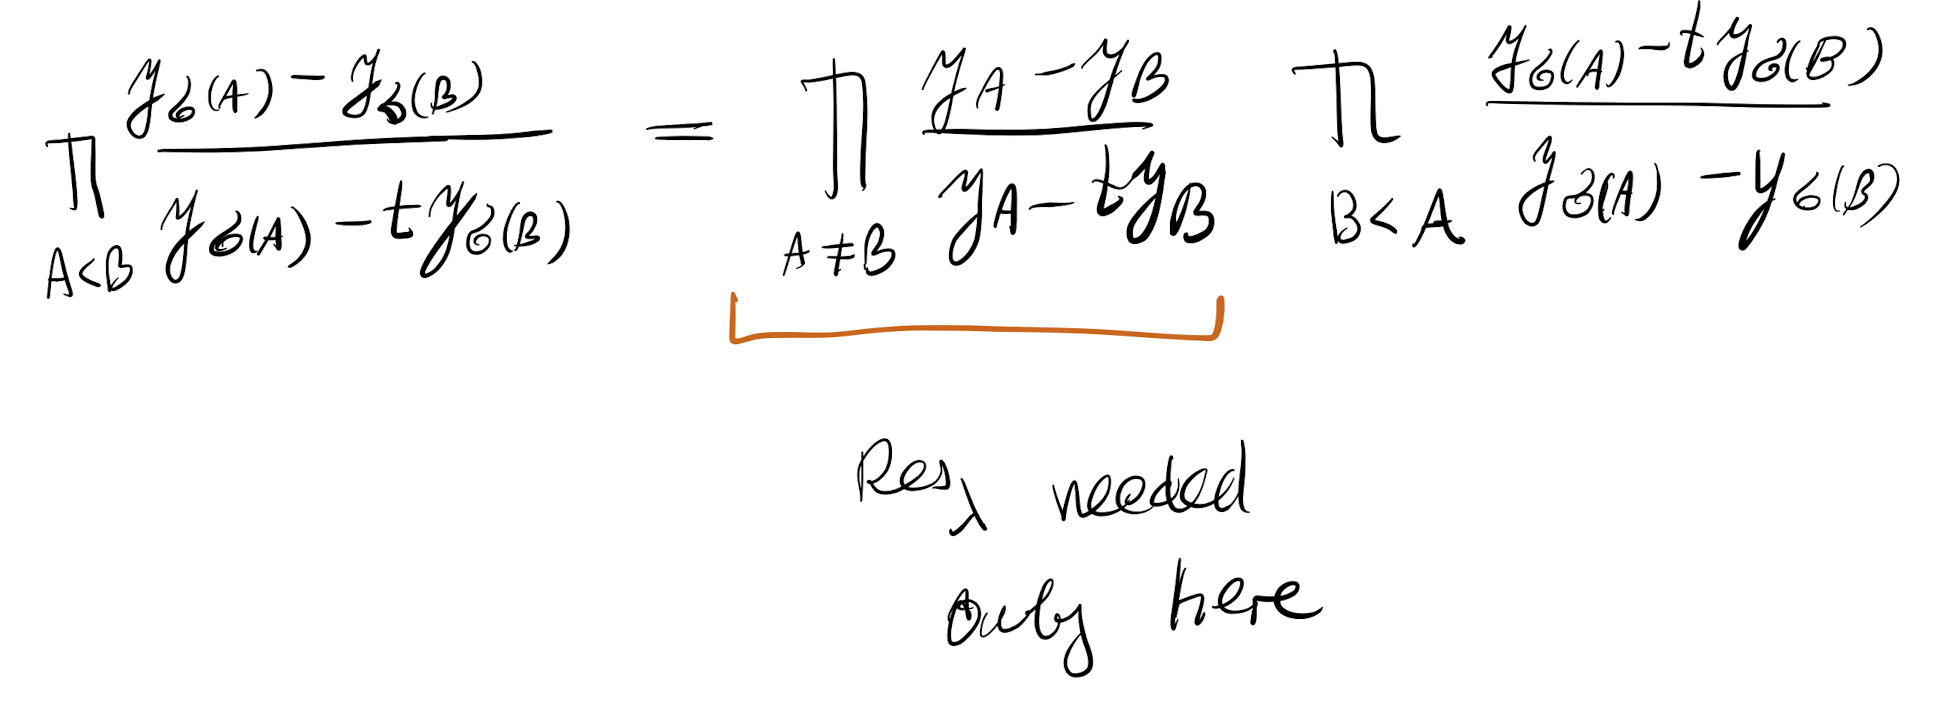 ∏_{A<B} \frac{y_{σ(A)} - y_{σ(B)}}{y_{σ(A)} - t y_{σ(B)}} = ∏_{A≠B} \frac{y_A - y_B}{y_A - t y_B} ∏_{B<A} \frac{y_{σ(A)} - t y_{σ(B)}}{y_{σ(A)} - y_{σ(B)}}
Res_λ needed
only here